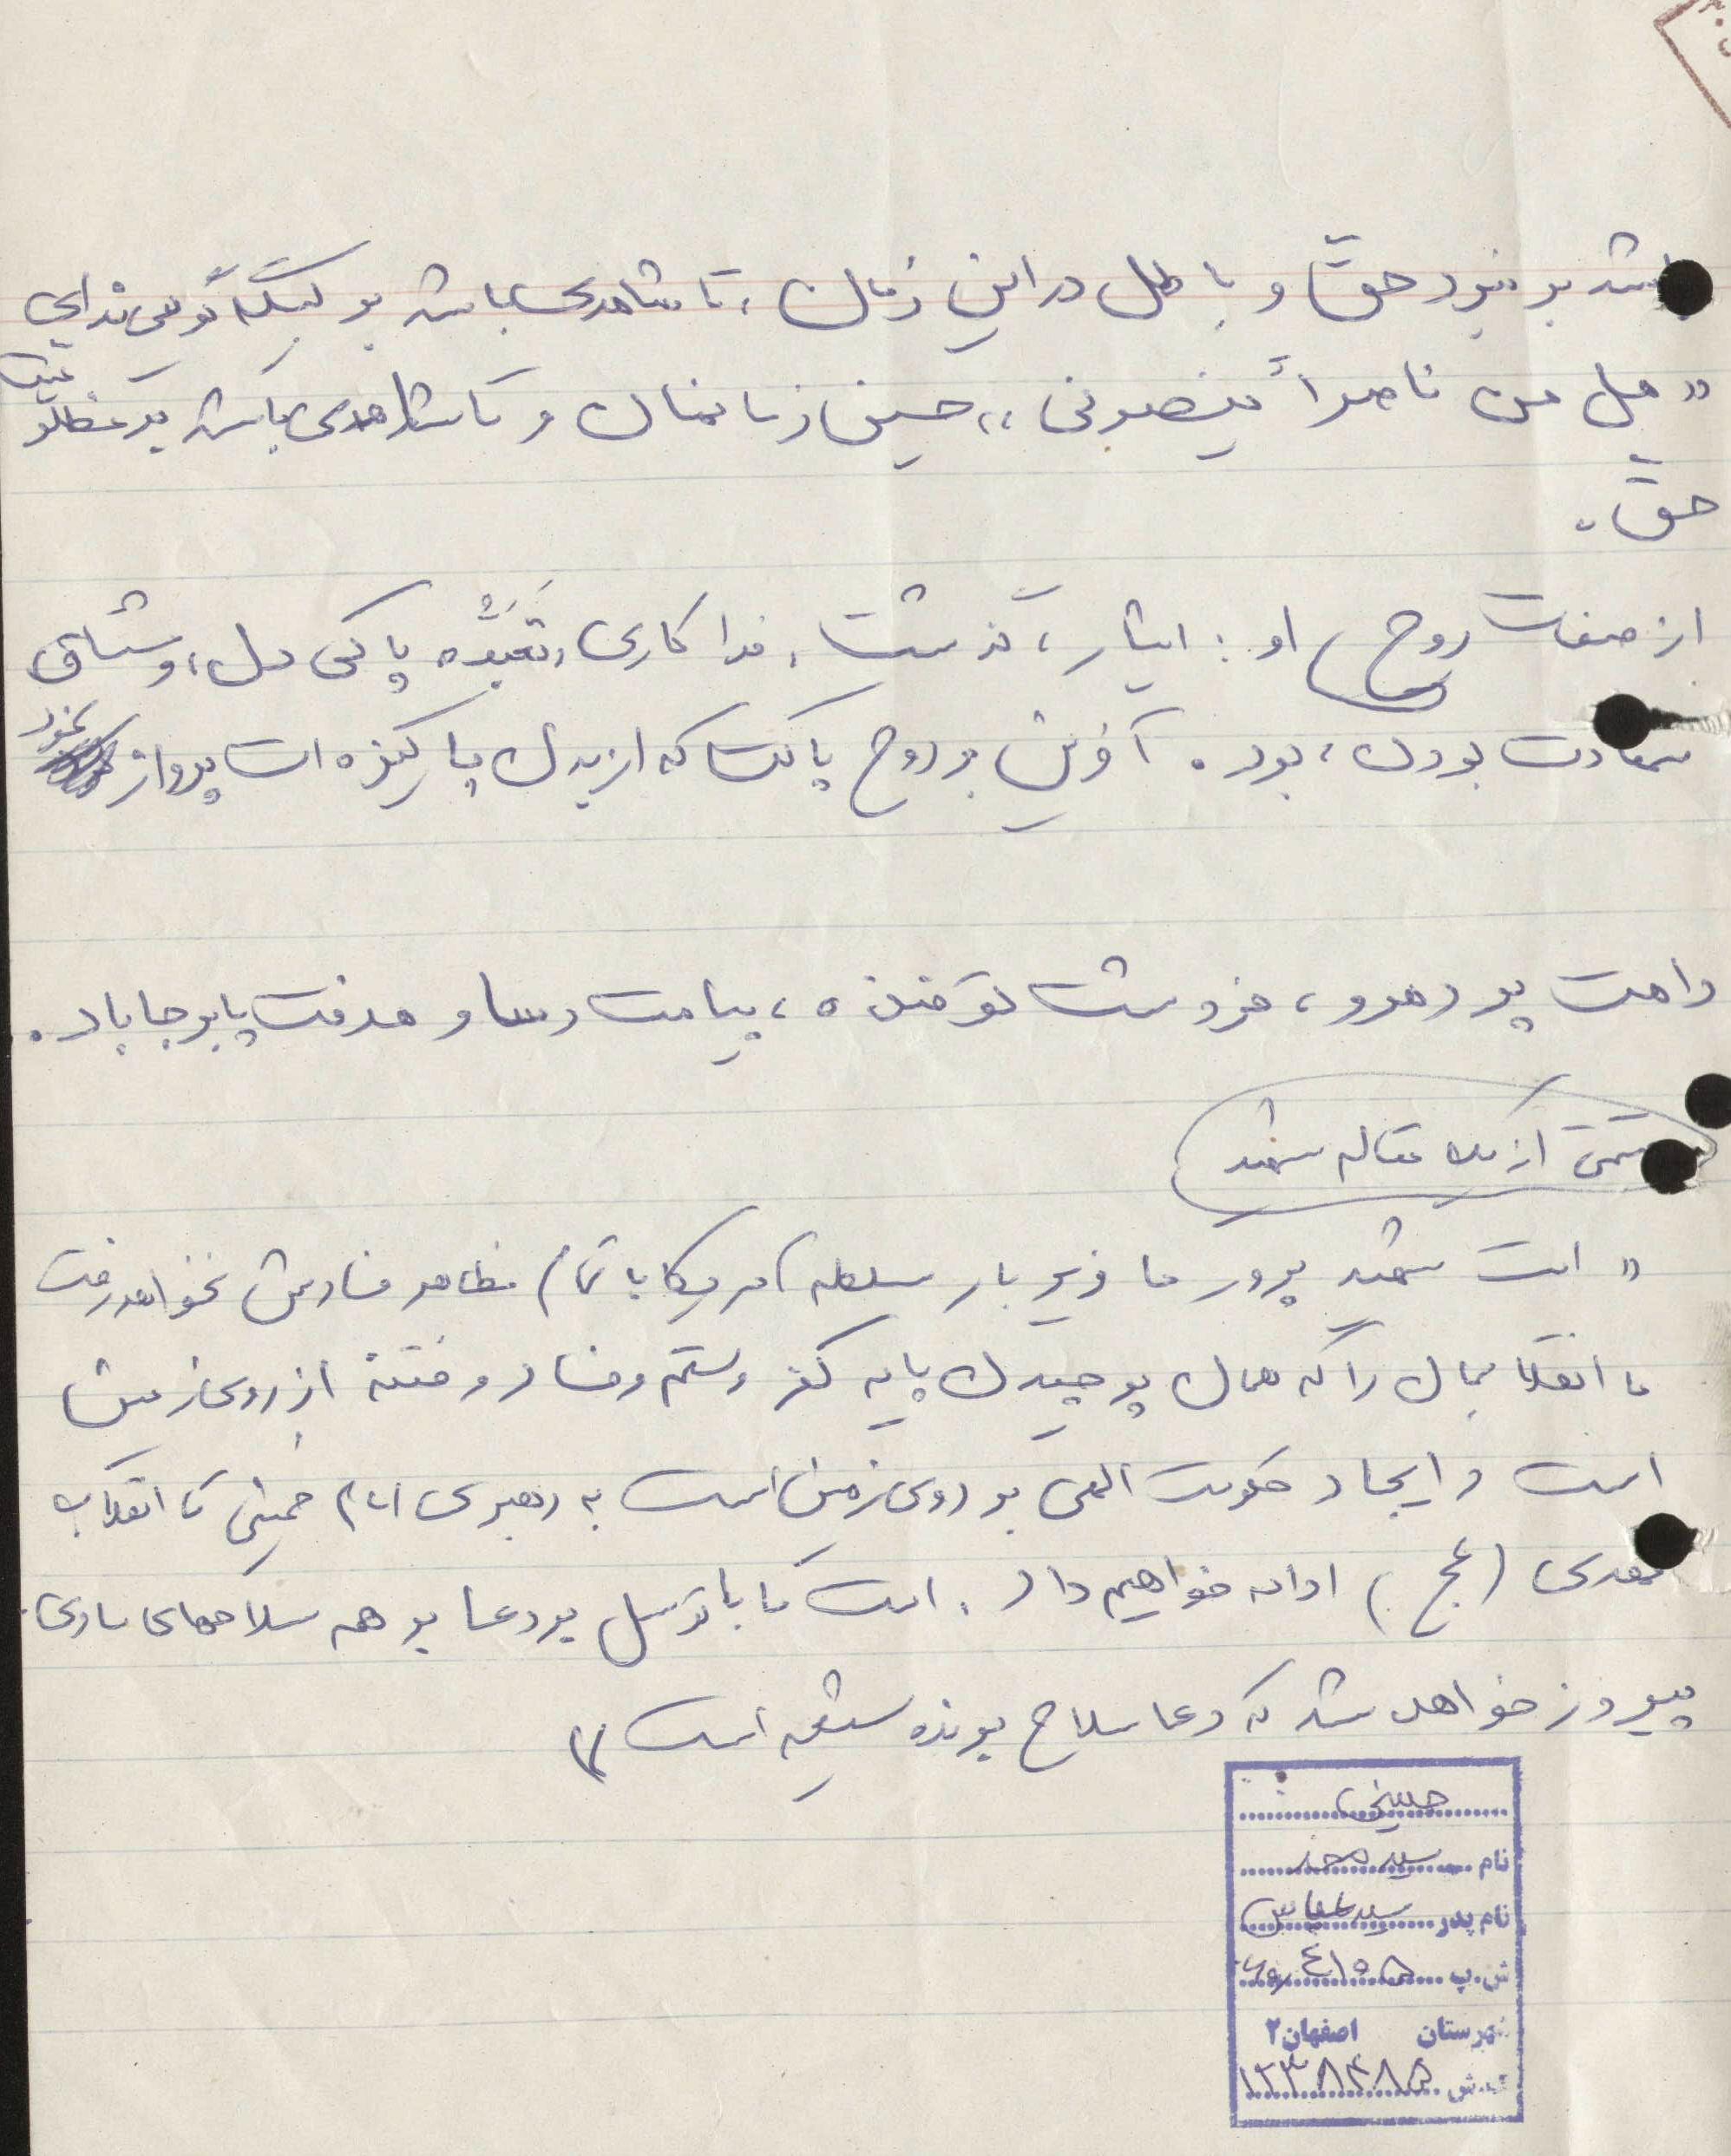 باشد بر نبرد حقّ و باطل در این زمان، تا شاهدی باشد بر لبیک‌گویی ندای
«هل من ناصراً ینصرنی»، حسین زمانمان و تا شاهدی باشد بر مظلومیت
حقّ.
از صفات روحی او: ایثار، گذشت، فداکاری، تَعَبُّد، پاکی دل، و مشتاق
شهادت بودن، بود. آفرین بر روح پاکت که از بدن پاکیزه‌ات پرواز نمود
راهت پر رهرو، خروشت توفنده، پیامت رسا و هدفت پابرجا باد.
قسمتی از یک مقاله شهید
« امت شهید پرور ما زیر بار سلطه آمریکا با تمام مظاهر فسادش نخواهد رفت
ما انقلابمان را که همان برچیدن پایه کفر و ستم و فساد و فتنه از روی زمین
است و ایجاد حکومت الهی بر روی زمین است به رهبری امام خمینی تا انقلاب
مهدی (عج) ادامه خواهیم داد. امت ما با توسل بر دعا بر همه سلاحهای مادی
پیروز خواهد شد که دعا سلاح برنده شیعه است »
حسینی
نام سید محمد
نام پدر سید عباس
ش.پ ۴۱۰۵
شهرستان اصفهان ۲
ک.ش ۱۲۳۸۴۸۵